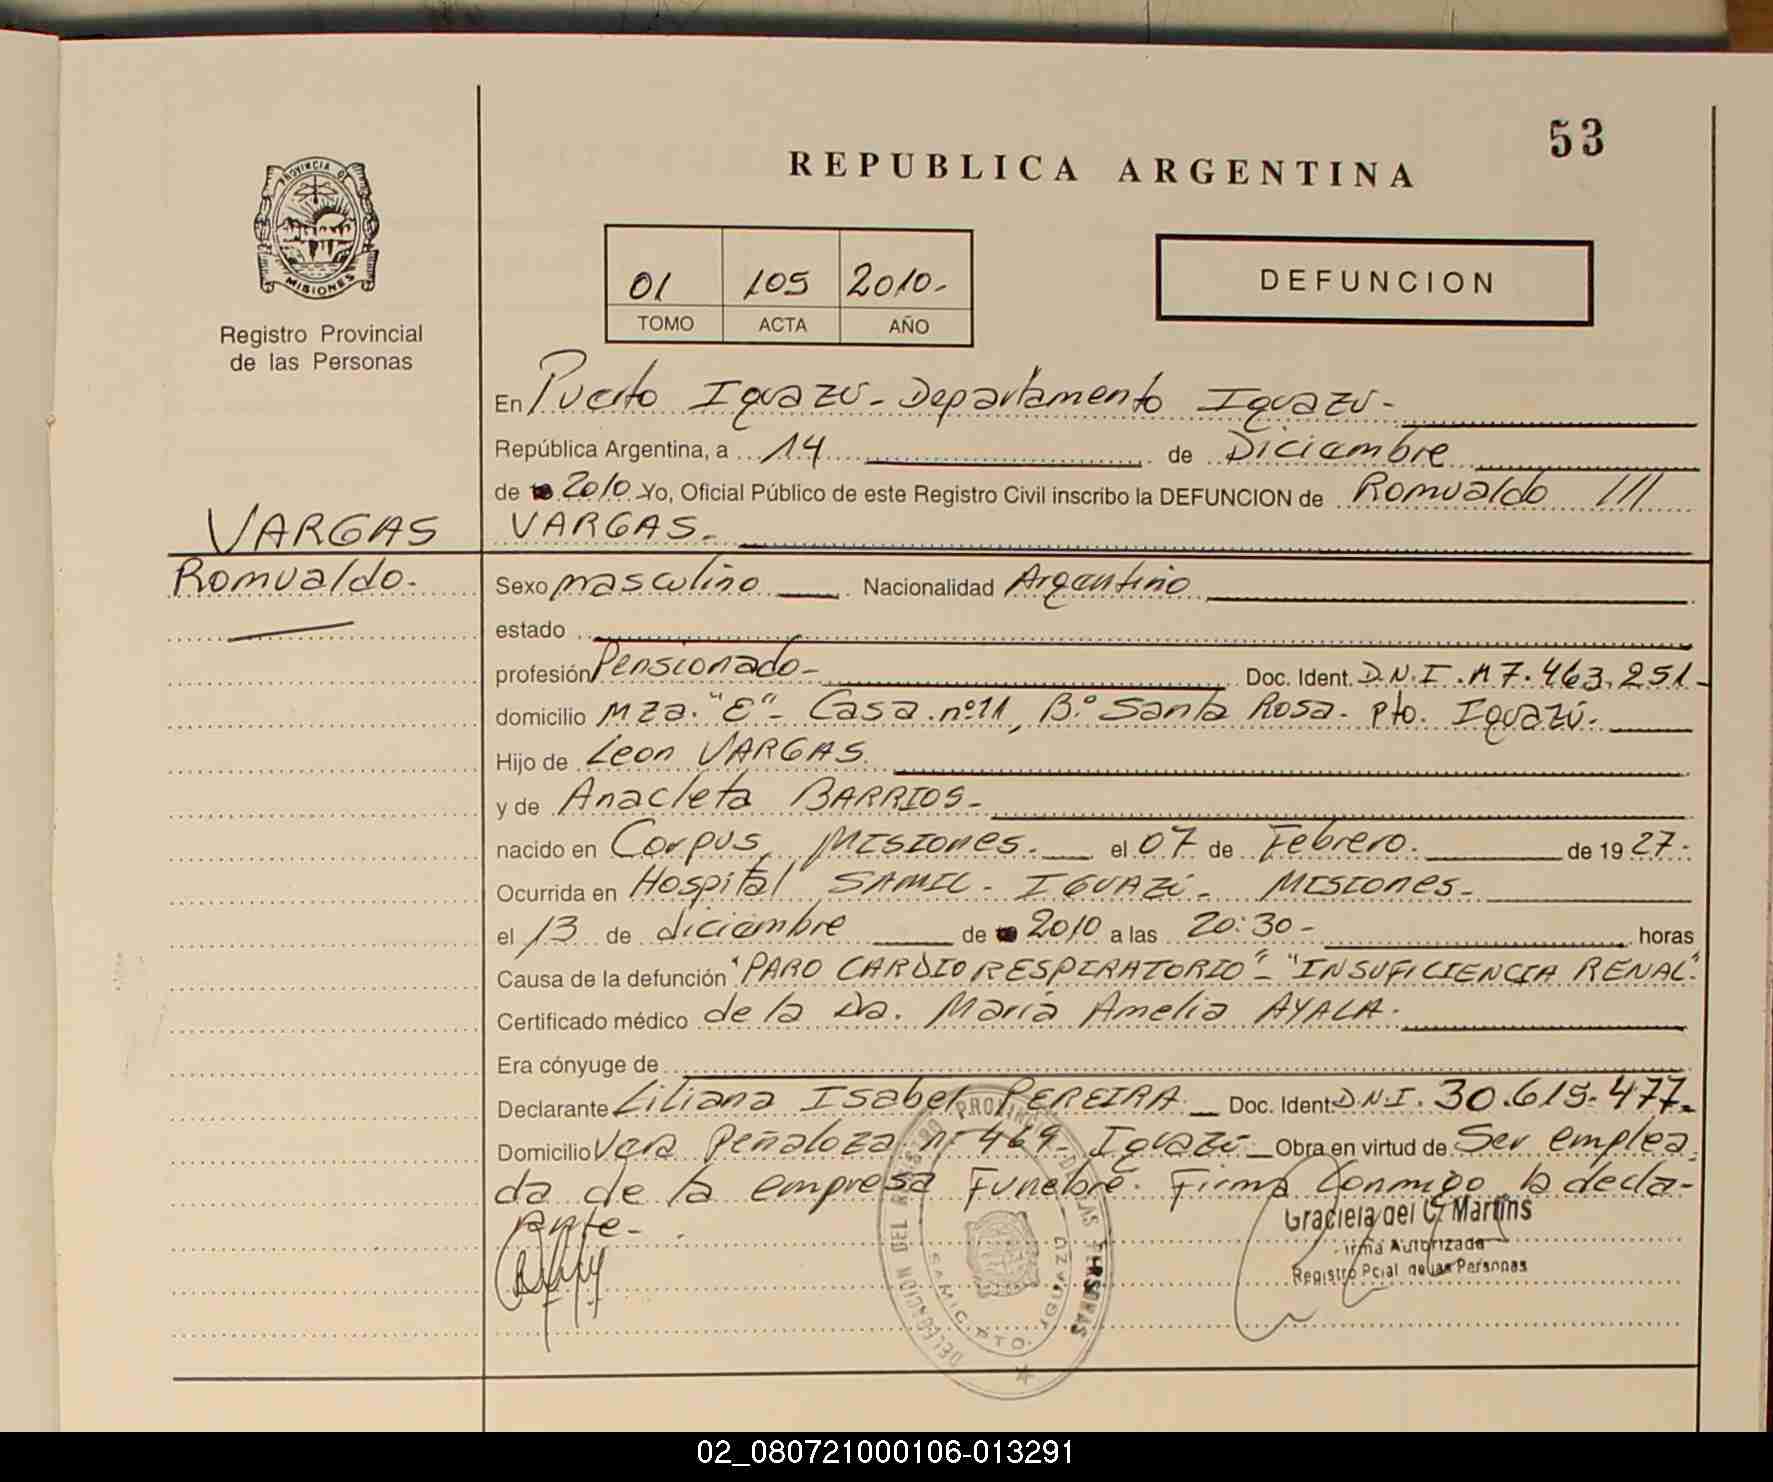 53
REPUBLICA ARGENTINA
PROVINCIA DE
MISIONES
Registro Provincial
de las Personas
01 105 2010-
TOMO ACTA AÑO
DEFUNCION
En Puerto Iguazú - Departamento Iguazú -
República Argentina, a 14 de Diciembre
de 2010 Yo, Oficial Público de este Registro Civil inscribo la DEFUNCION de Romualdo ///
VARGAS.-
VARGAS
Romualdo.
Sexo masculino Nacionalidad Argentino
estado
profesión Pensionado - Doc. Ident. D.N.I. n 7.463.251-
domicilio Mza. "E" - Casa nº 11, B.º Santa Rosa - Pto. Iguazú.
Hijo de Leon VARGAS
y de Anacleta BARRIOS -
nacido en Corpus, MISIONES. el 07 de Febrero. de 19 27.
Ocurrida en Hospital SAMIC - IGUAZÚ - MISIONES -
el 13 de diciembre de 2010 a las 20:30 - horas
Causa de la defunción "PARO CARDIO RESPIRATORIO" - "INSUFICIENCIA RENAL".
Certificado médico de la Dra. María Amelia AYALA.
Era cónyuge de
Declarante Liliana Isabel PEREIRA Doc. Ident. D.N.I. 30.619.477.
Domicilio Vera Peñaloza nº 469 - Iguazú Obra en virtud de Ser emplea
da de la empresa Funebre. Firma Conmigo la decla-
rante -
Graciela del C. Martins
Firma Autorizada
Registro Pcial de las Personas
DELEGACION DEL REGISTRO PROVINCIAL DE LAS PERSONAS
SAMIC. PTO. IGUAZU
02_080721000106-013291